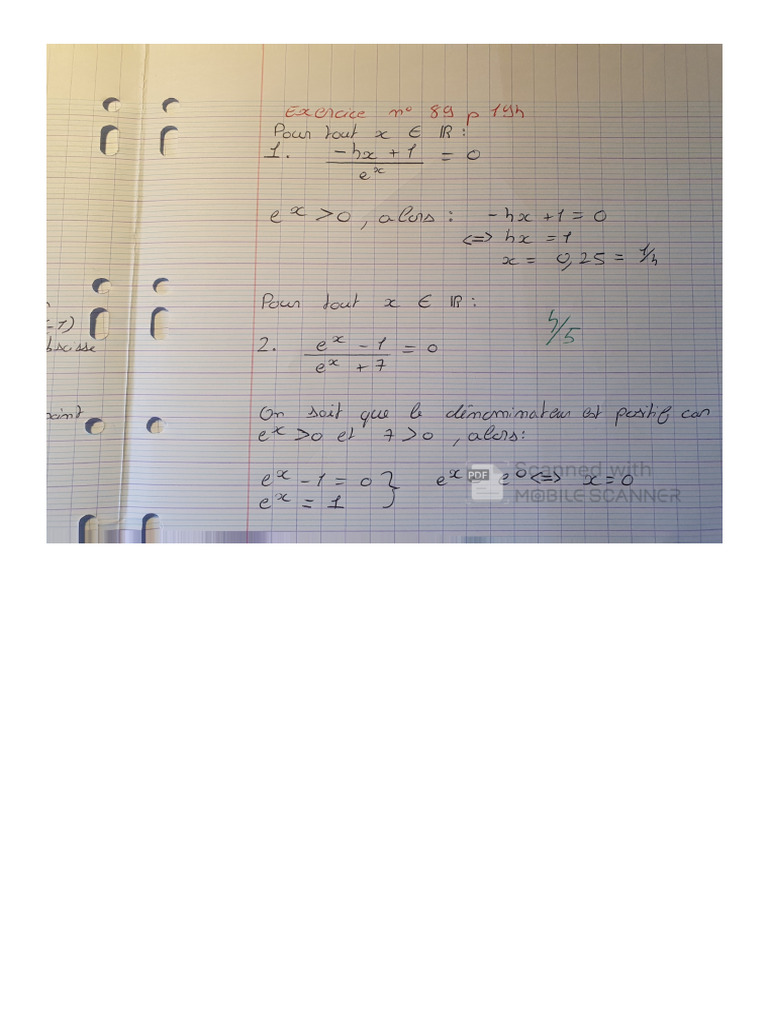 Exercice n° 89 p 194
Pour tout x ∈ ℝ :
1. (-4x + 1)/(e^x) = 0
e^x > 0, alors : -4x + 1 = 0
<=> 4x = 1
x = 0,25 = 1/4
Pour tout x ∈ ℝ :
4/5
2. (e^x - 1)/(e^x + 7) = 0
On sait que le dénominateur est positif car
e^x > 0 et 7 > 0, alors :
e^x - 1 = 0 } e^x = e^0 <=> x = 0
e^x = 1
=1)
PDF
Scanned with
MOBILE SCANNER